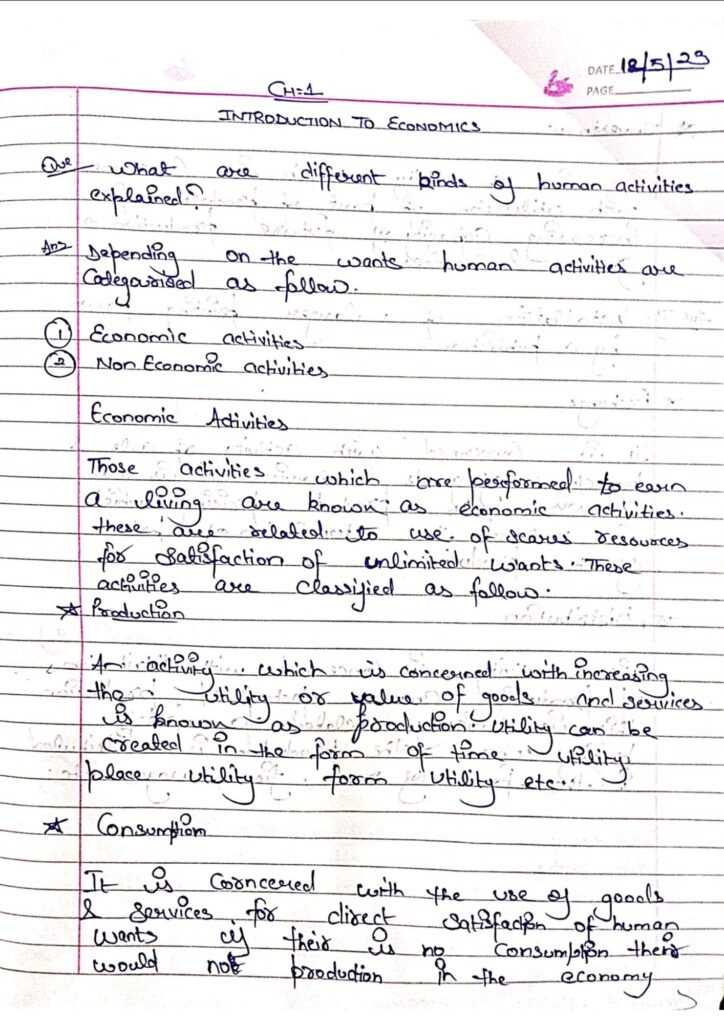 DATE 18/5/23
PAGE
CH=1
INTRODUCTION TO ECONOMICS
Que What are different kinds of human activities
explained?
Ans Depending on the wants human activities are
Categaurised as follow.
1 Economic activities
2 Non Economic activities
Economic Activities
Those activities which are performed to earn
a living are known as economic activities.
these are related to use of scares resources
for satisfaction of unlimited wants. These
activities are classified as follow.
☆ Production
An activity which is concerned with increasing
the utility or value of goods and services
is known as production. Utility can be
created in the form of time utility
place utility form utility etc.
☆ Consumption
It is Corncered with the use of goods
& services for direct satisfaction of human
wants if their is no Consumption their
would not production in the economy